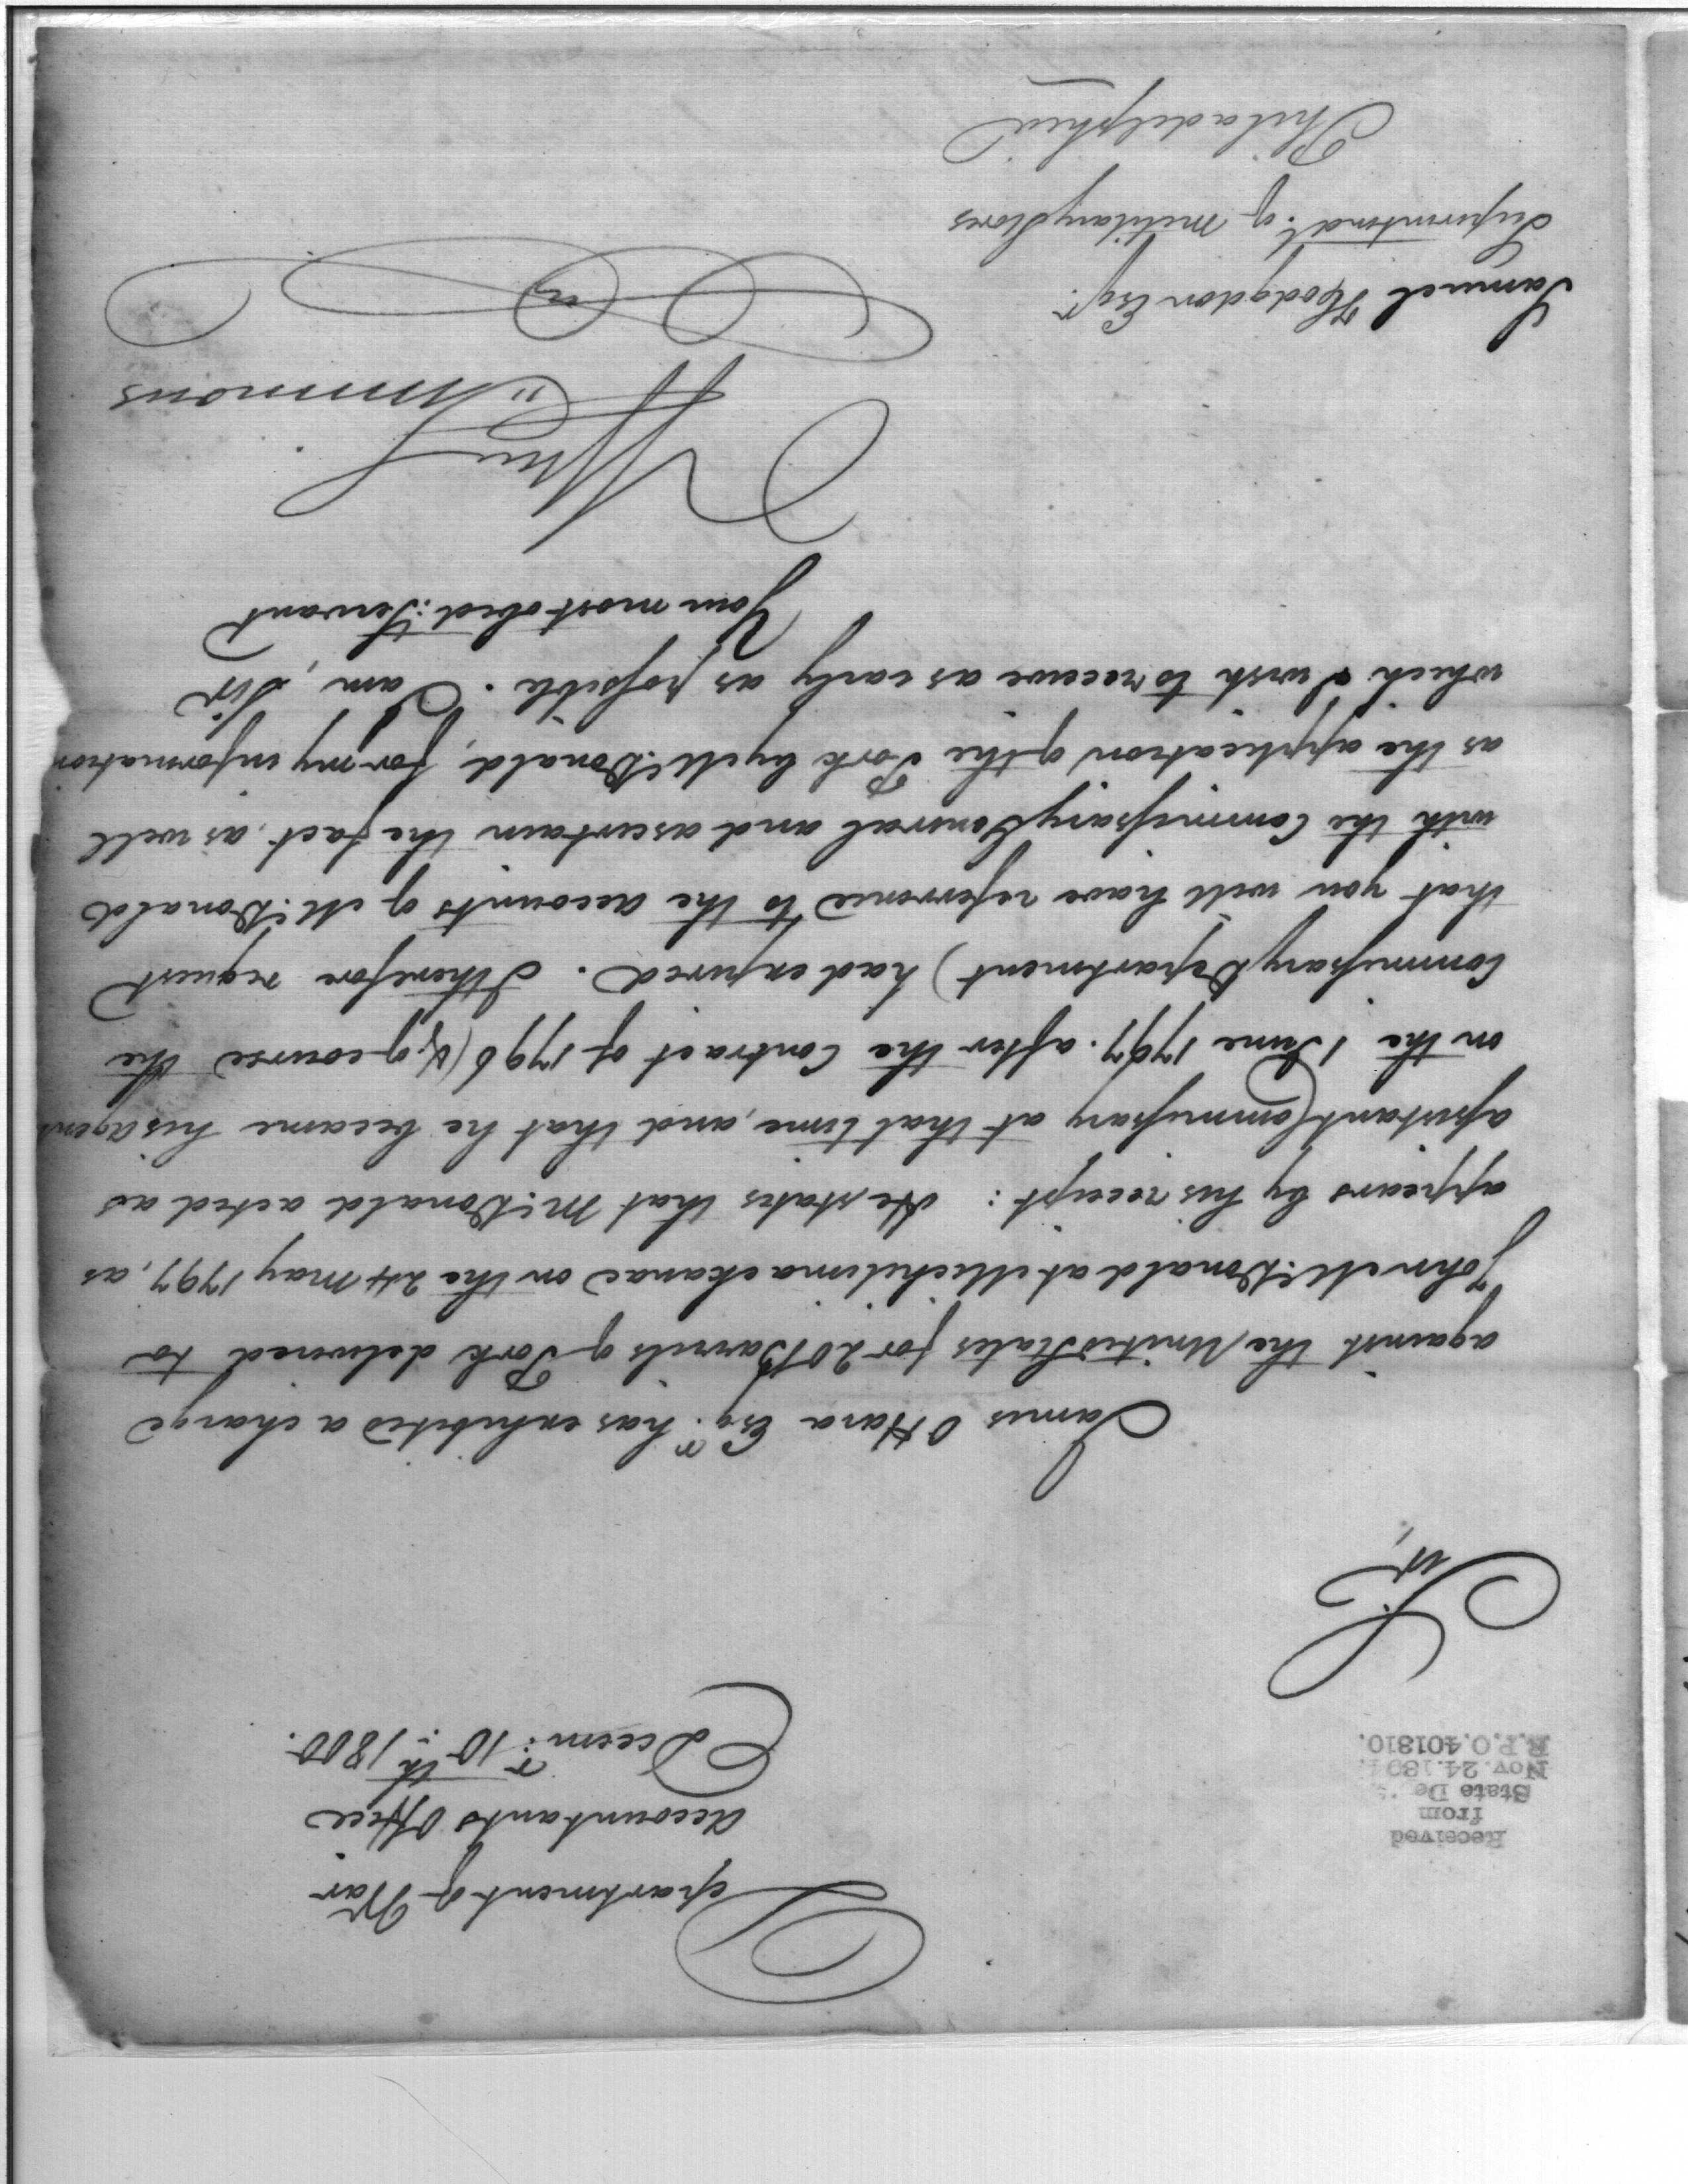 Department of War
Accountants Office
Decemr. 10th. 1800.
Received
from
State De
Nov. 24. 189
R.P.O. 401810.
Sir,
James OHara Esqr. has exhibited a charge
against the United States for 20 Barrels of Pork delivered to
John McDonald at Michilimackanac on the 24 May 1797, as
appears by his receipt: He states that McDonald acted as
assistant Commissary at that time, and that he became his agent
on the 1 June 1797. after the Contract of 1796 (& of course the
Commissary Department) had expired. I therefore request
that you will have reference to the accounts of McDonald
with the Commissary General and ascertain the fact, as well
as the application of the Pork by McDonald, for my information
which I wish to receive as early as possible. I am, Sir
Your most obed: Servant
Wm Simmons
Samuel Hodgdon Esqr.
Superintendt. of Military Stores
Philadelphia